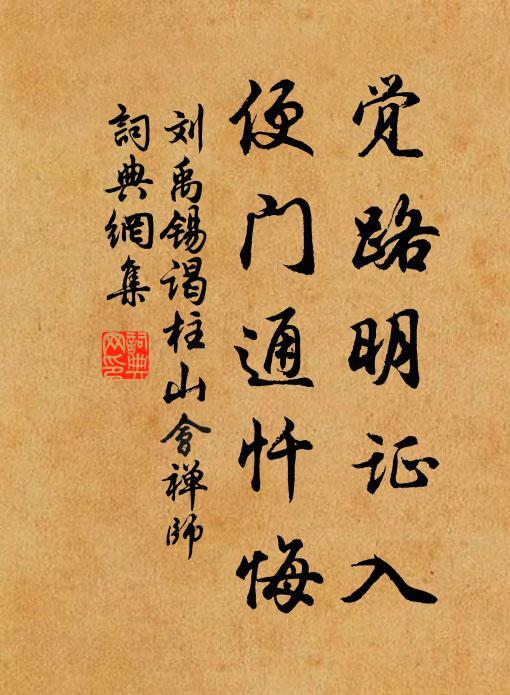 觉路明证入
便门通忏悔
刘禹锡谒柱山会禅师
詞典網集
詞典
网印